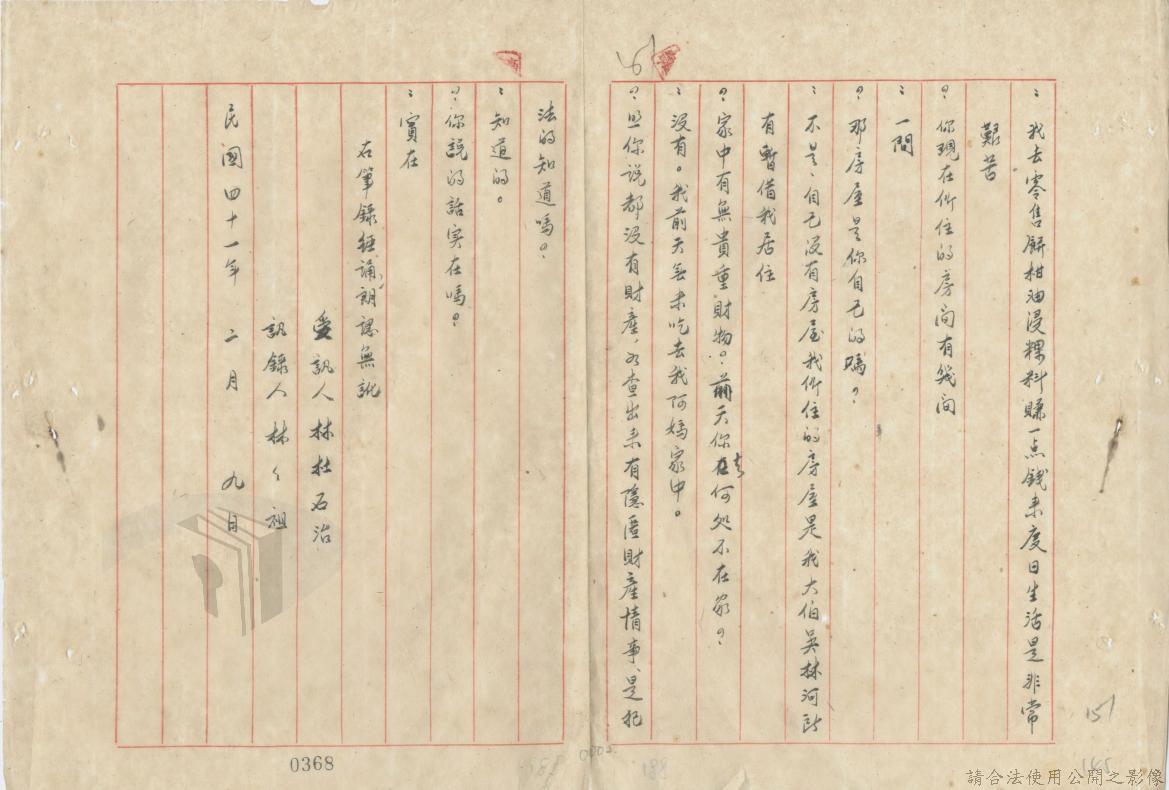 ：我去零售餅柑油浸粿料賺一点錢来度日生活是非常
艱苦
？你現在所住的房间有幾间
：一間
？那房屋是你自己的嗎？
：不是、自己没有房屋我所住的房屋是我大伯吴林河所
有暫借我居住
？家中有無貴重財物？前天你去何処不在家？
：没有。我前天無米吃去我阿媽家中。
？照你说都没有財產，如查出来有隱匿財產情事、是犯
法的知道嗎？
：知道的。
？你説的話实在嗎？
：實在
右筆錄經誦朗認無訛
受訊人 林杜石治
訊錄人 林々祖
民國四十一年 二月 九日
0368
151
請合法使用公開之影像